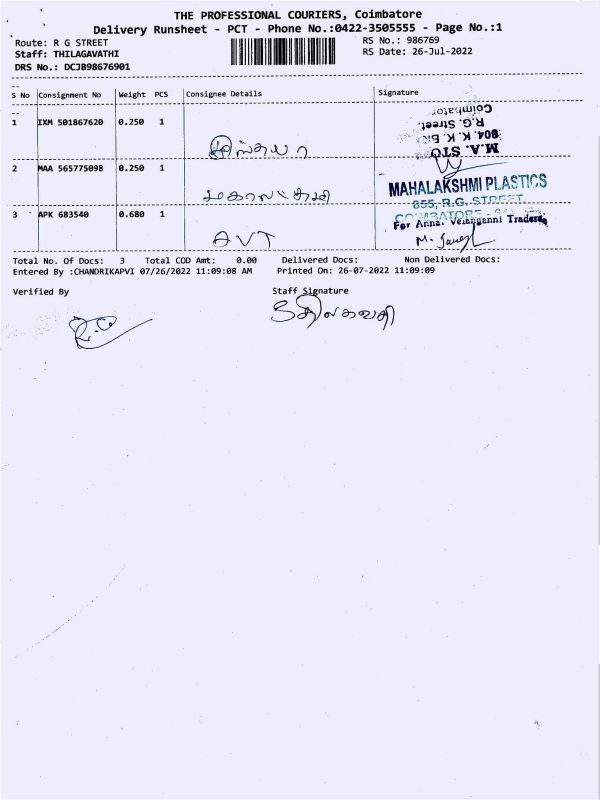 THE PROFESSIONAL COURIERS, Coimbatore
Delivery Runsheet - PCT - Phone No.:0422-3505555 - Page No.:1
Route: R G STREET
RS No.: 986769
Staff: THILAGAVATHI
RS Date: 26-Jul-2022
DRS No.: DCJB98676901
S No Consignment No Weight PCS Consignee Details Signature
1 IXM 501867620 0.250 1
M.A. STO
804, K. K.
R.G. Street,
Coimbator
2 MAA 565775098 0.250 1 மகாலட்சுமி
MAHALAKSHMI PLASTICS
855, R.G. STREET
3 APK 683540 0.680 1 AVT
COIMBATORE
For Annai Velanganni Traders
Total No. Of Docs: 3 Total COD Amt: 0.00 Delivered Docs: Non Delivered Docs:
Entered By :CHANDRIKAPVI 07/26/2022 11:09:08 AM Printed On: 26-07-2022 11:09:09
Verified By Staff Signature
திலகவதி